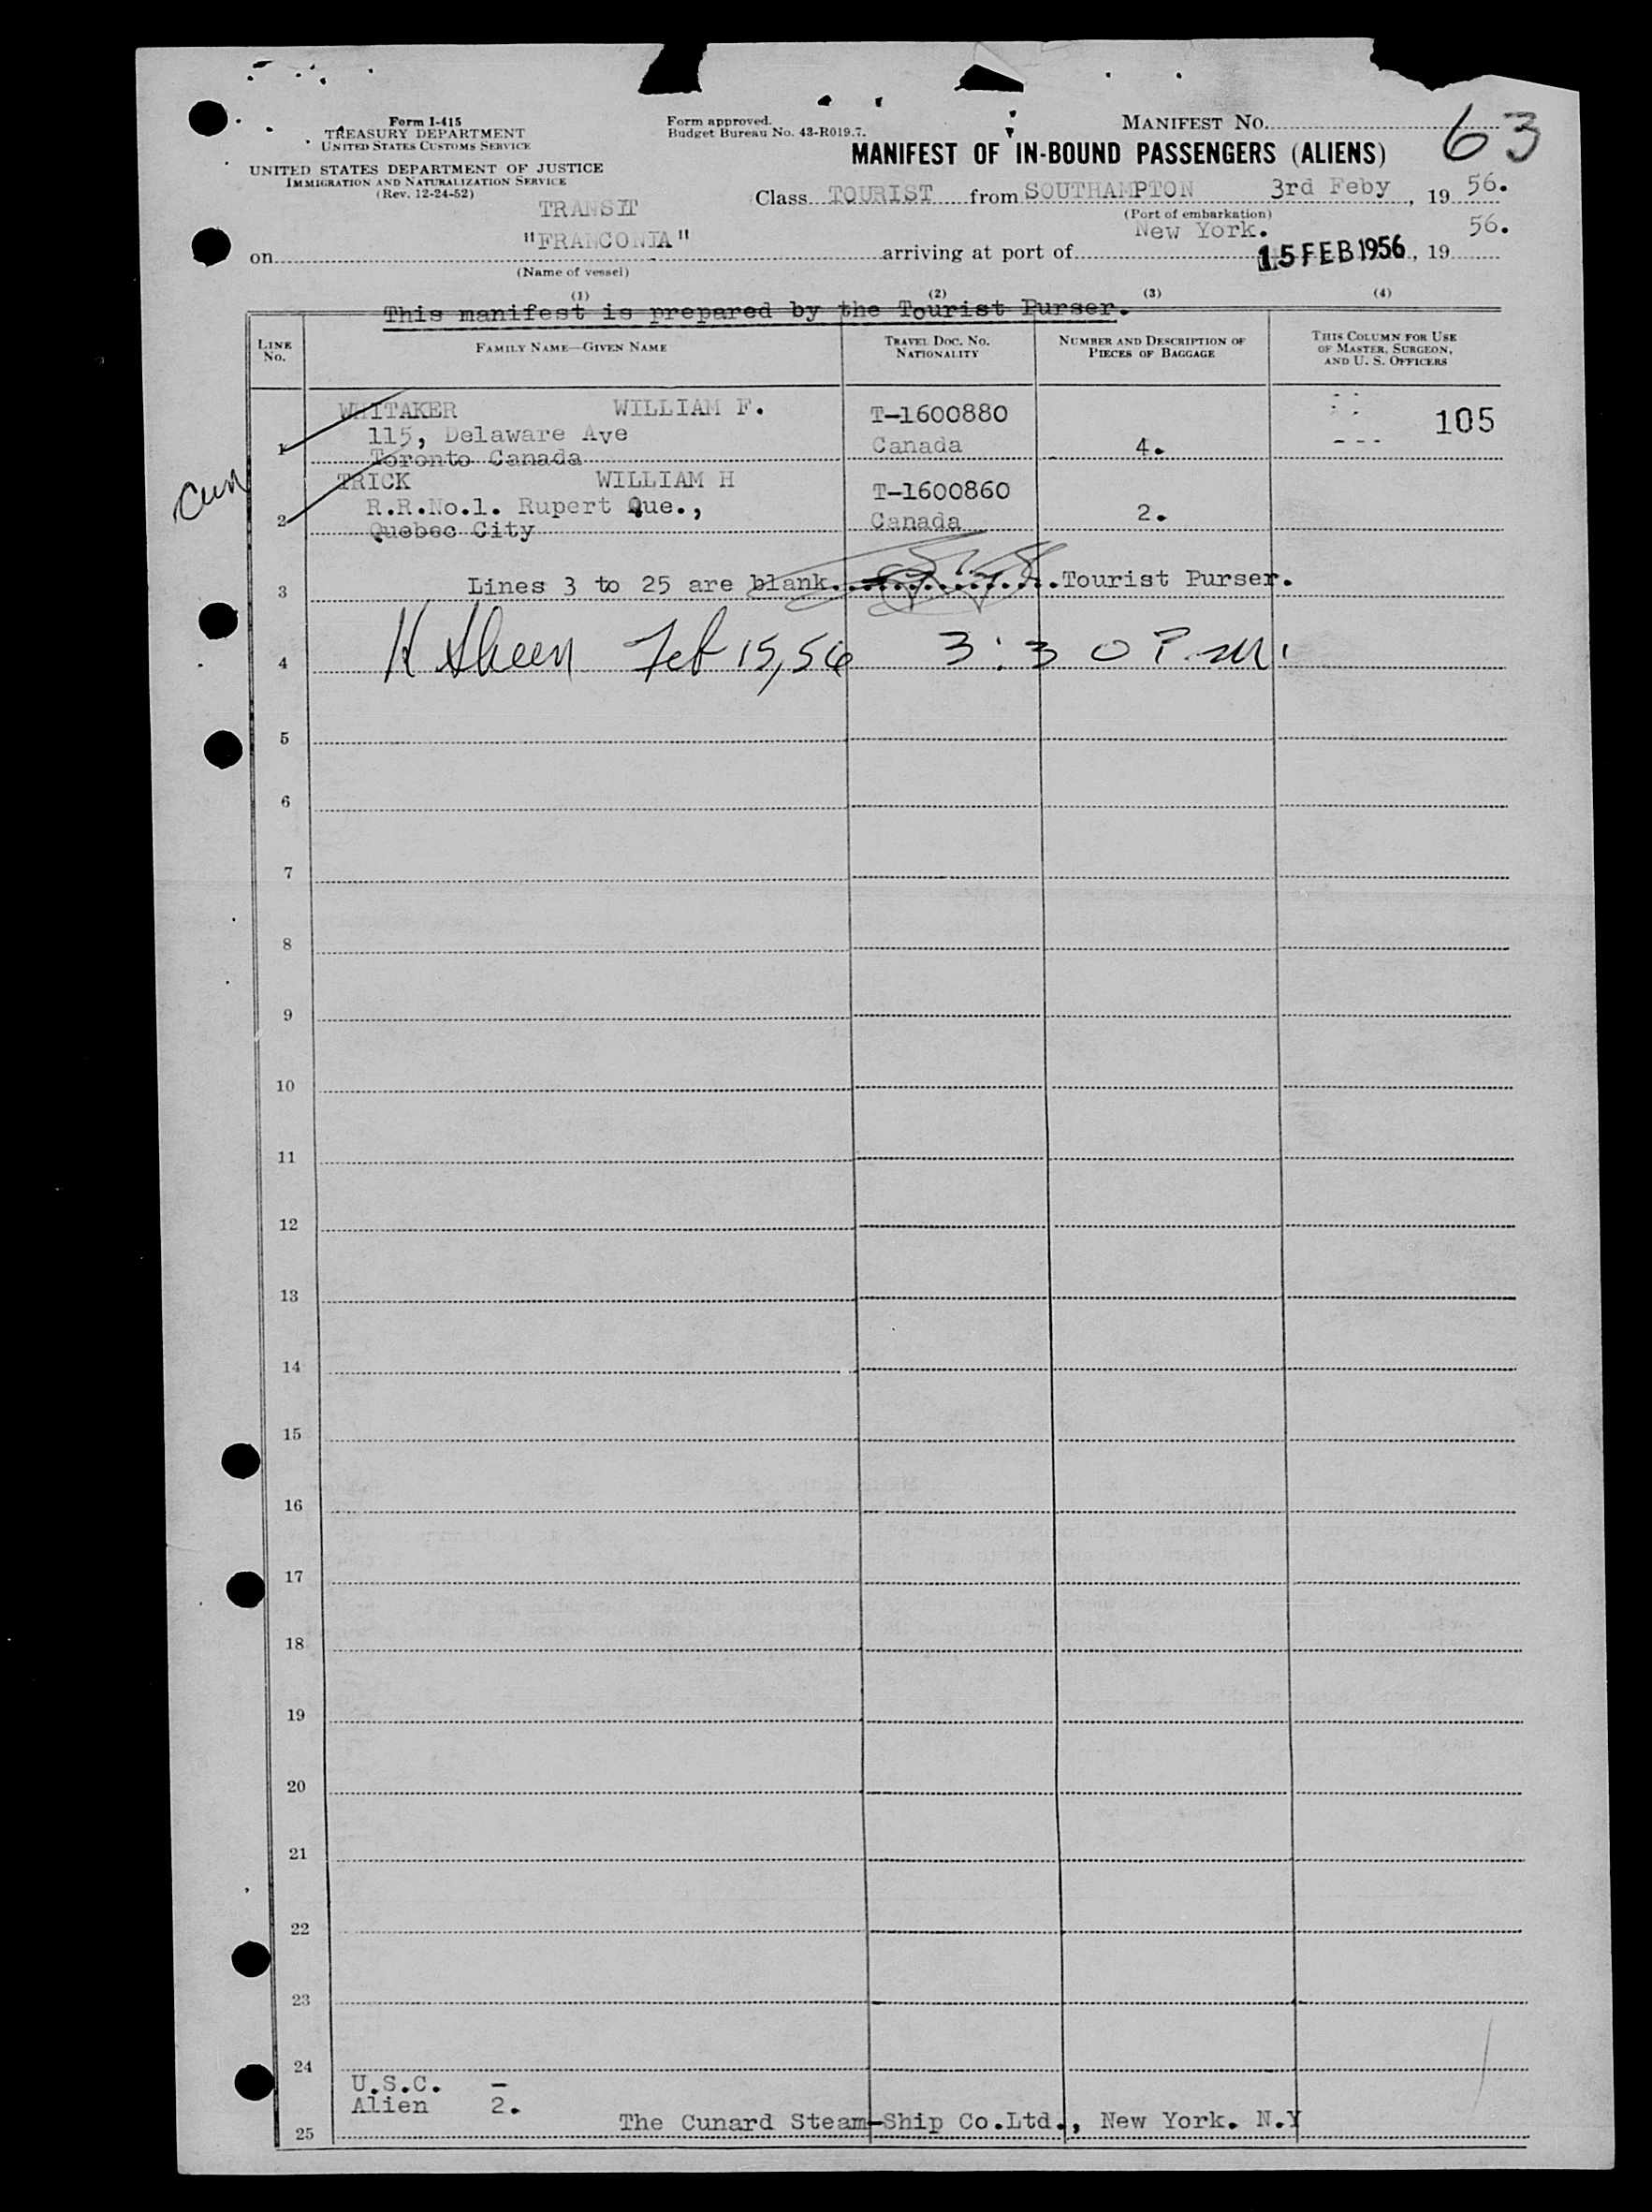 Form I-415
TREASURY DEPARTMENT
UNITED STATES CUSTOMS SERVICE
UNITED STATES DEPARTMENT OF JUSTICE
IMMIGRATION AND NATURALIZATION SERVICE
(Rev. 12-24-52)
Form approved.
Budget Bureau No. 43-R019.7.
MANIFEST NO. 63
MANIFEST OF IN-BOUND PASSENGERS (ALIENS)
Class TOURIST from SOUTHAMPTON 3rd Feby, 19 56.
(Port of embarkation)
TRANSIT
on "FRANCONIA" arriving at port of New York. 15 FEB 1956, 19 56.
(Name of vessel)
(1) (2) (3) (4)
This manifest is prepared by the Tourist Purser.
LINE No. FAMILY NAME—GIVEN NAME TRAVEL DOC. NO. NATIONALITY NUMBER AND DESCRIPTION OF PIECES OF BAGGAGE THIS COLUMN FOR USE OF MASTER, SURGEON, AND U. S. OFFICERS
WHITAKER WILLIAM F. T-1600880 105
1 115, Delaware Ave Canada 4.
Toronto Canada
TRICK WILLIAM H T-1600860
2 R.R.No.1. Rupert Que., Canada 2.
Quebec City
3 Lines 3 to 25 are blank. Tourist Purser.
4 H Sheen Feb 15, 56 3:30 P.M.
5
6
7
8
9
10
11
12
13
14
15
16
17
18
19
20
21
22
23
24
U.S.C. —
Alien 2.
25 The Cunard Steam-Ship Co.Ltd., New York. N.Y